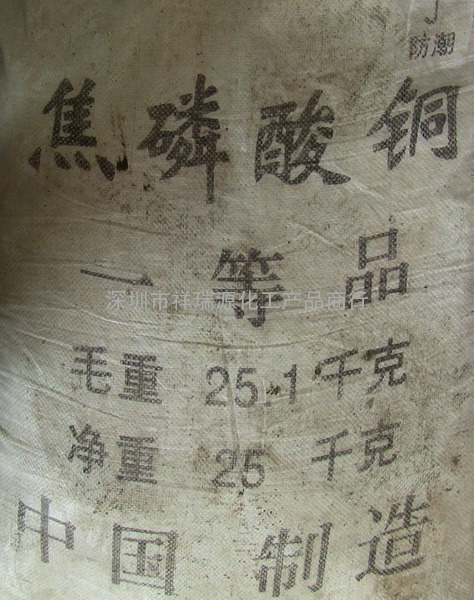 防潮
焦磷酸铜
一等品
深圳市祥瑞源化工产品商行
毛重 25.1 千克
净重 25 千克
中国 制造